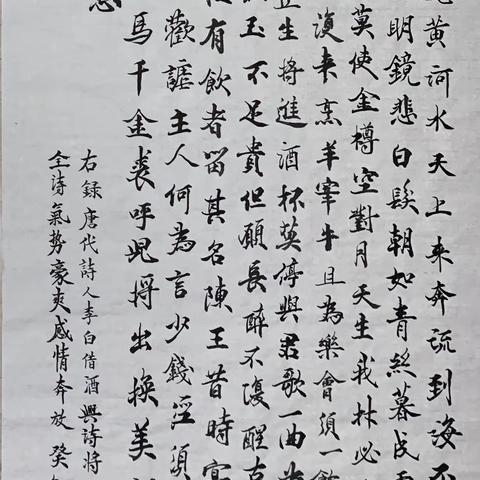 黄河水天上来奔流到海不
明鏡悲白髮朝如青絲暮成
莫使金樽空對月天生我材必
復来烹羊宰牛且為樂會須一飲
丘生將進酒杯莫停與君歌一曲
玉不足貴但願長醉不復醒古
有飲者留其名陳王昔時宴
歡謔主人何為言少錢徑須
馬千金裘呼児將出換美
右録唐代詩人李白借酒興詩將
全詩氣勢豪爽感情奔放癸